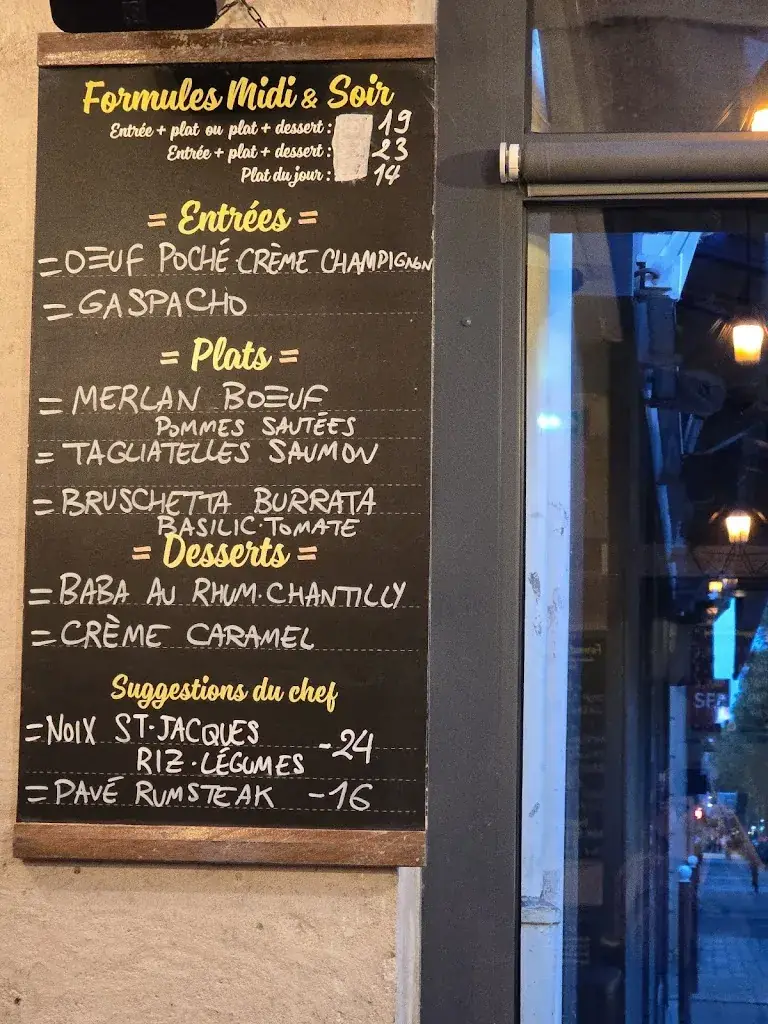 Formules Midi & Soir
Entrée + plat ou plat + dessert : 19
Entrée + plat + dessert : 23
Plat du jour : 14
= Entrées =
= OEUF POCHÉ CRÈME CHAMPIGNON
= GASPACHO
= Plats =
= MERLAN BOEUF
POMMES SAUTÉES
= TAGLIATELLES SAUMON
= BRUSCHETTA BURRATA
BASILIC·TOMATE
= Desserts =
= BABA AU RHUM·CHANTILLY
= CRÈME CARAMEL
Suggestions du chef
= NOIX ST·JACQUES -24
RIZ·LÉGUMES
= PAVÉ RUMSTEAK -16